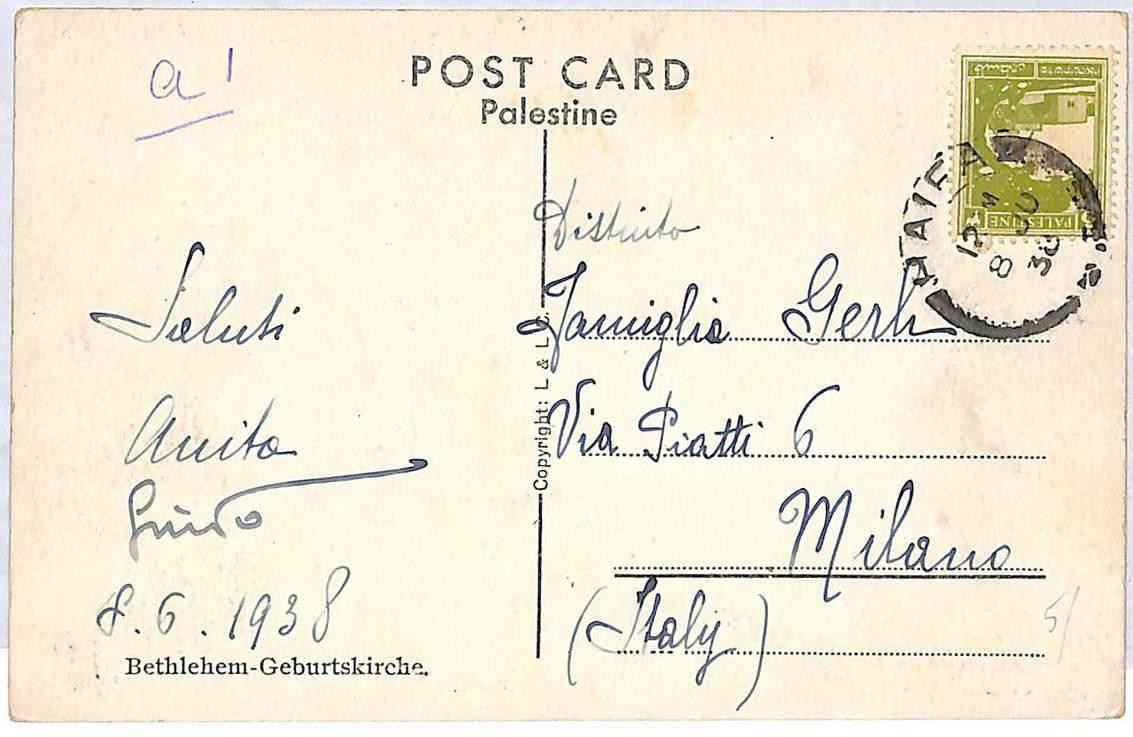 a1
POST CARD
Palestine
PALESTINE
HAIFA
8 JU
38
Saluti
Anita
Guido
8.6.1938
Bethlehem-Geburtskirche.
Copyright: L & L
Distinta
Famiglia Gerli
Via Piatti 6
Milano
(Italy)
5/